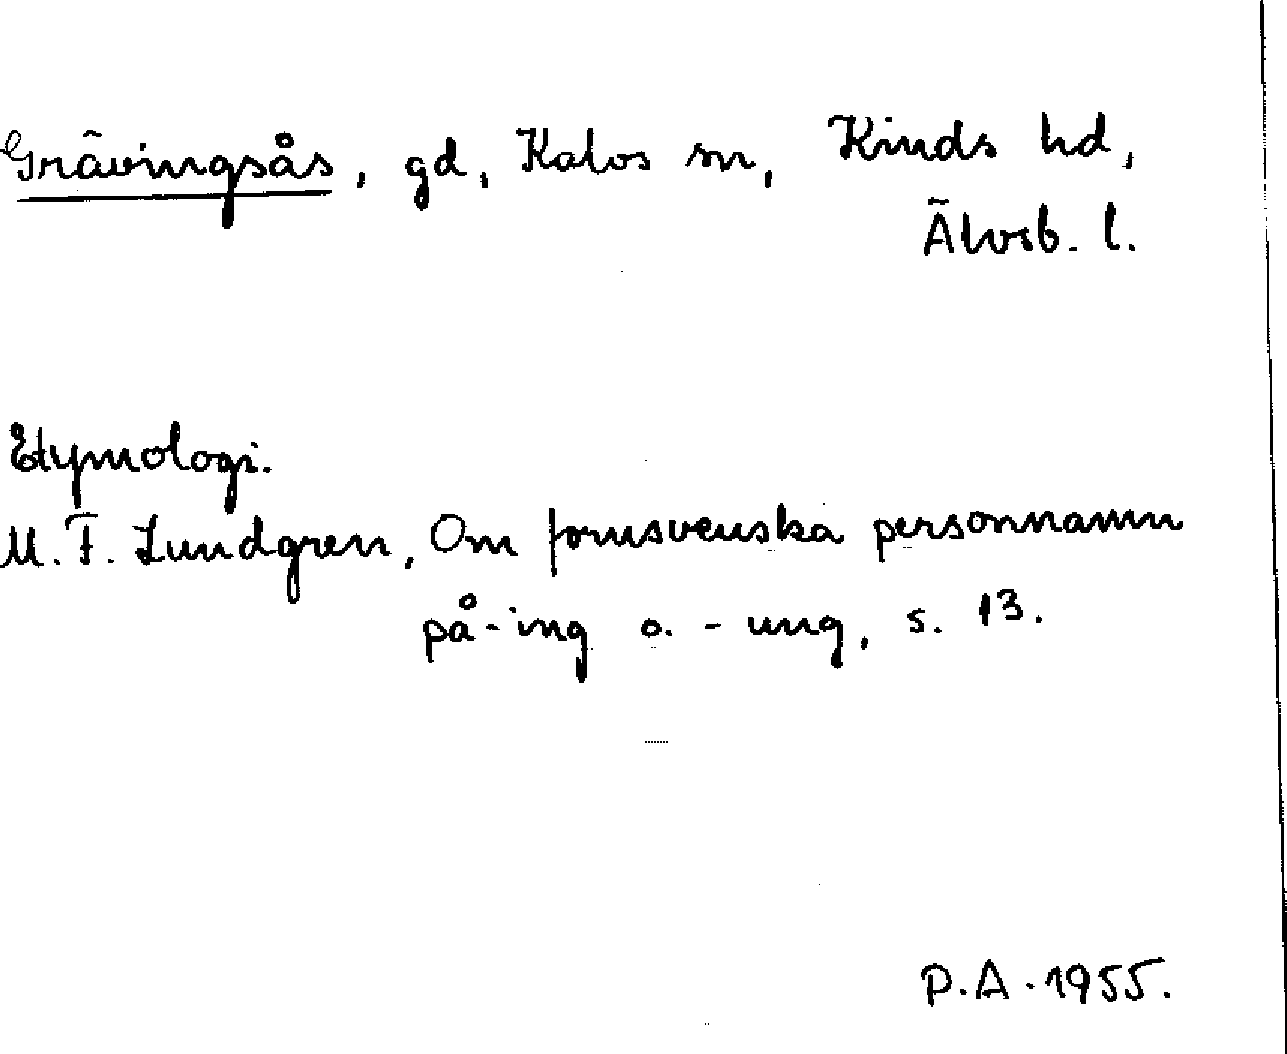 Grävingsås, gd, Kalvs sn, Kinds hd,
Älvsb. l.
Etymologi.
M. F. Lundgren, Om fornsvenska personnamn
på -ing o. -ung, s. 13.
P.A. 1955.